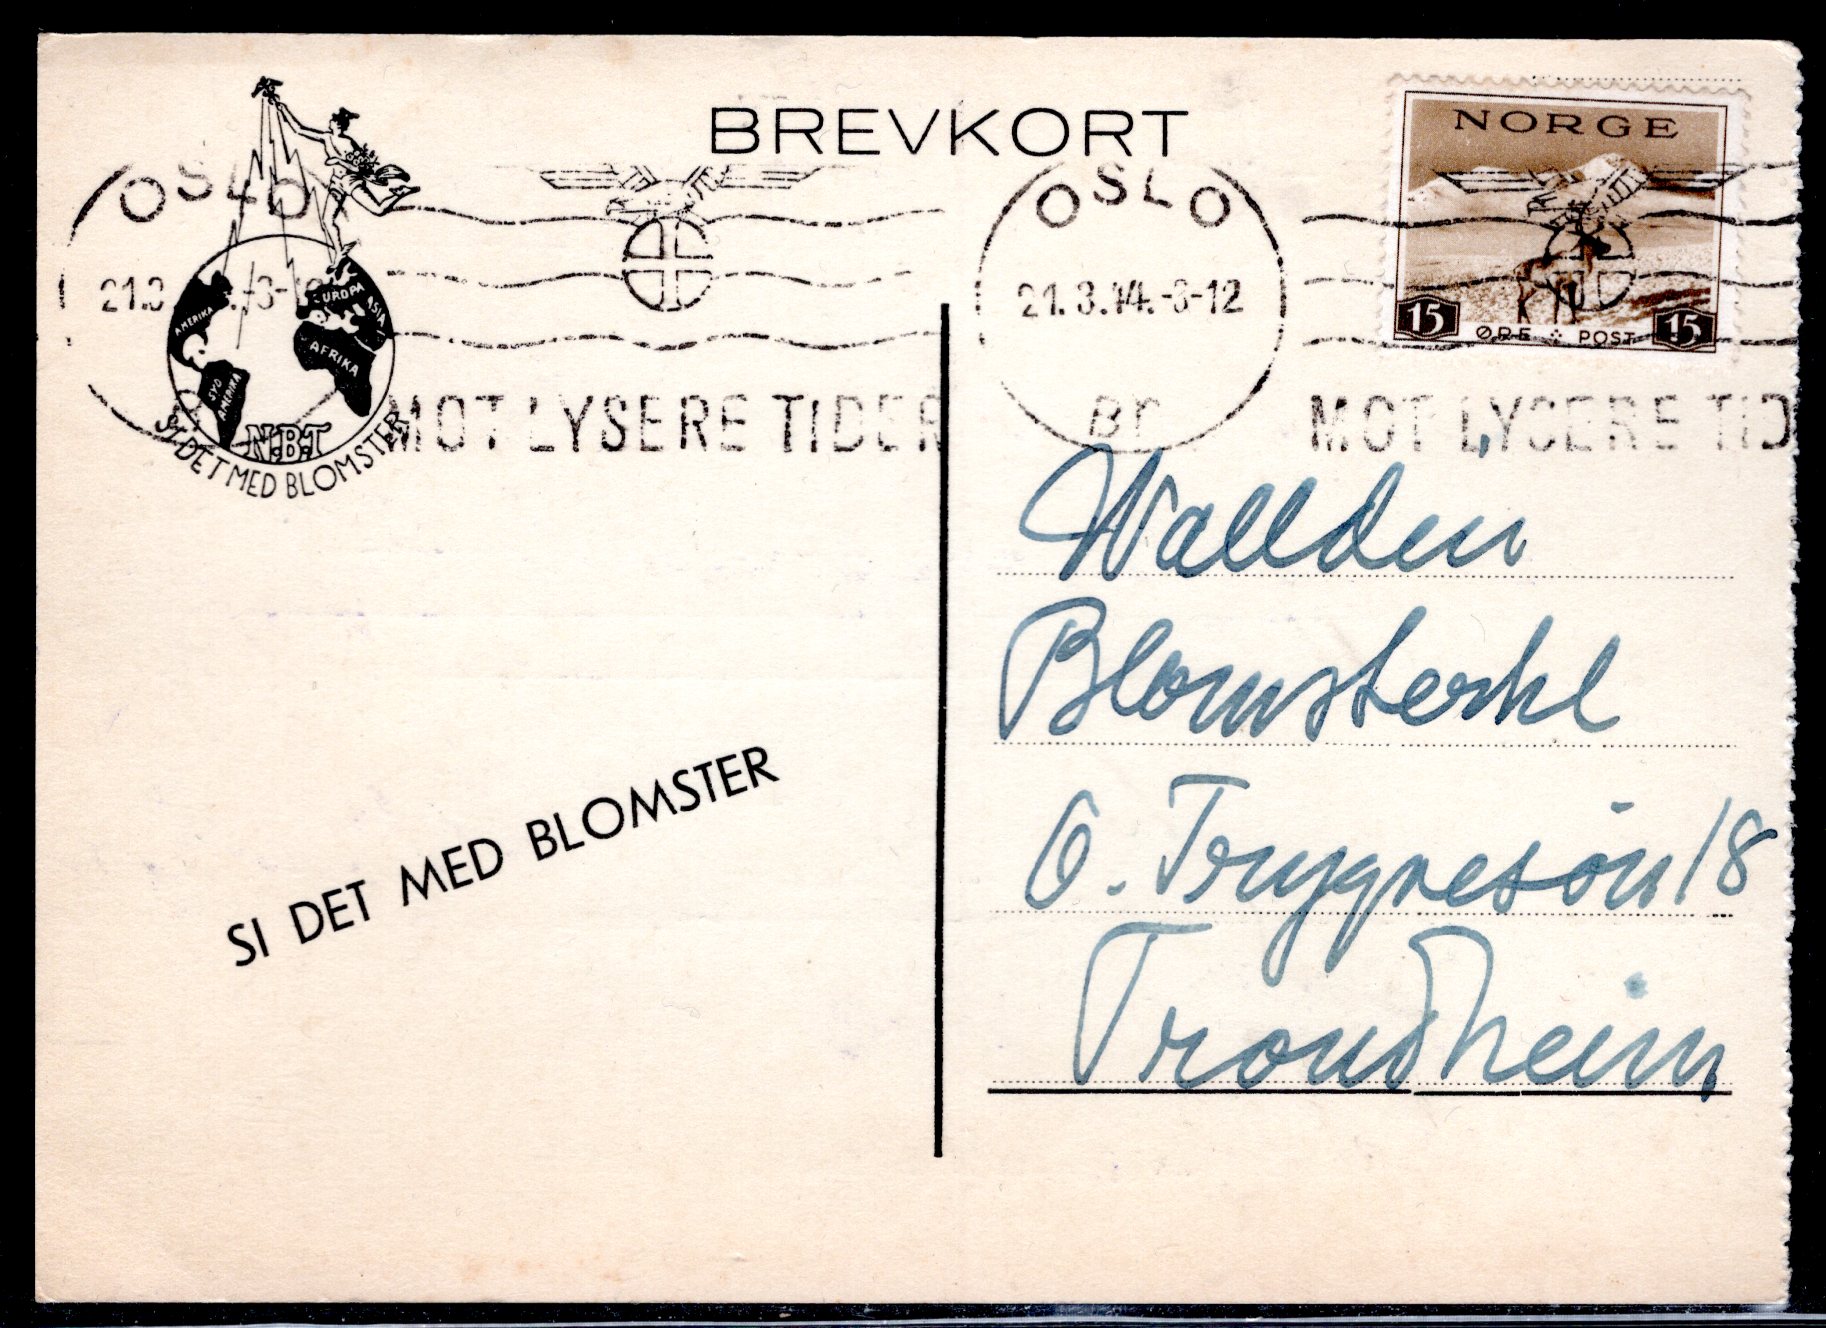 BREVKORT
NORGE
15 ØRE POST 15
OSLO
21.3
MOT LYSERE TIDER
OSLO
21.3.44.-8-12
Br
MOT LYSERE TID
AMERIKA
SYD AMERIKA
EUROPA
ASIA
AFRIKA
N.B.T
SI DET MED BLOMSTER
SI DET MED BLOMSTER
Wallden
Blomsterhl
O. Trygvesøn 18
Trondheim